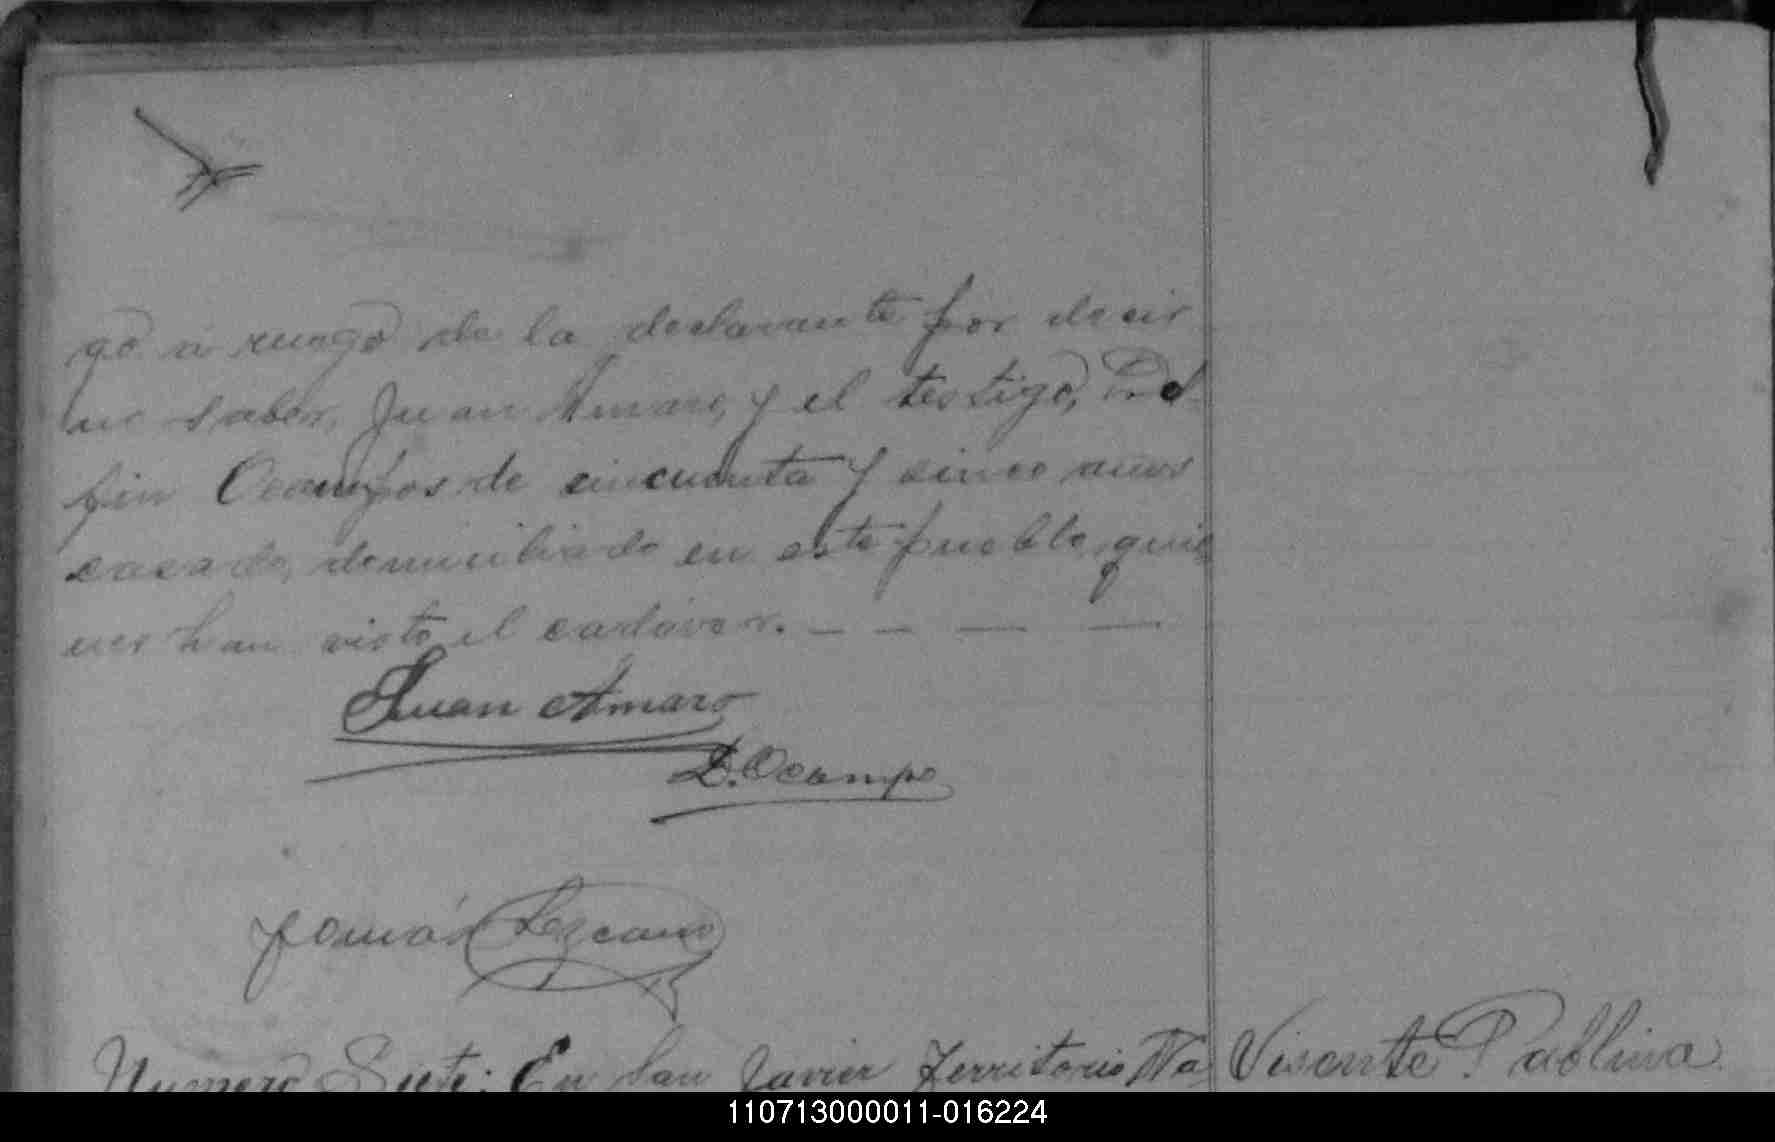 go á ruego de la declarante por decir
no saber, Juan Amaro, y el testigo, Del
fin Ocampos de cincuenta y cinco años
casado, domiciliado en este pueblo, quie
nes han visto el cadáver. — — — —
Juan Amaro
D. Ocampo
Tomás Lezcano
Numero Siete: En San Javier Territorio Na
Visente Pablina
110713000011-016224